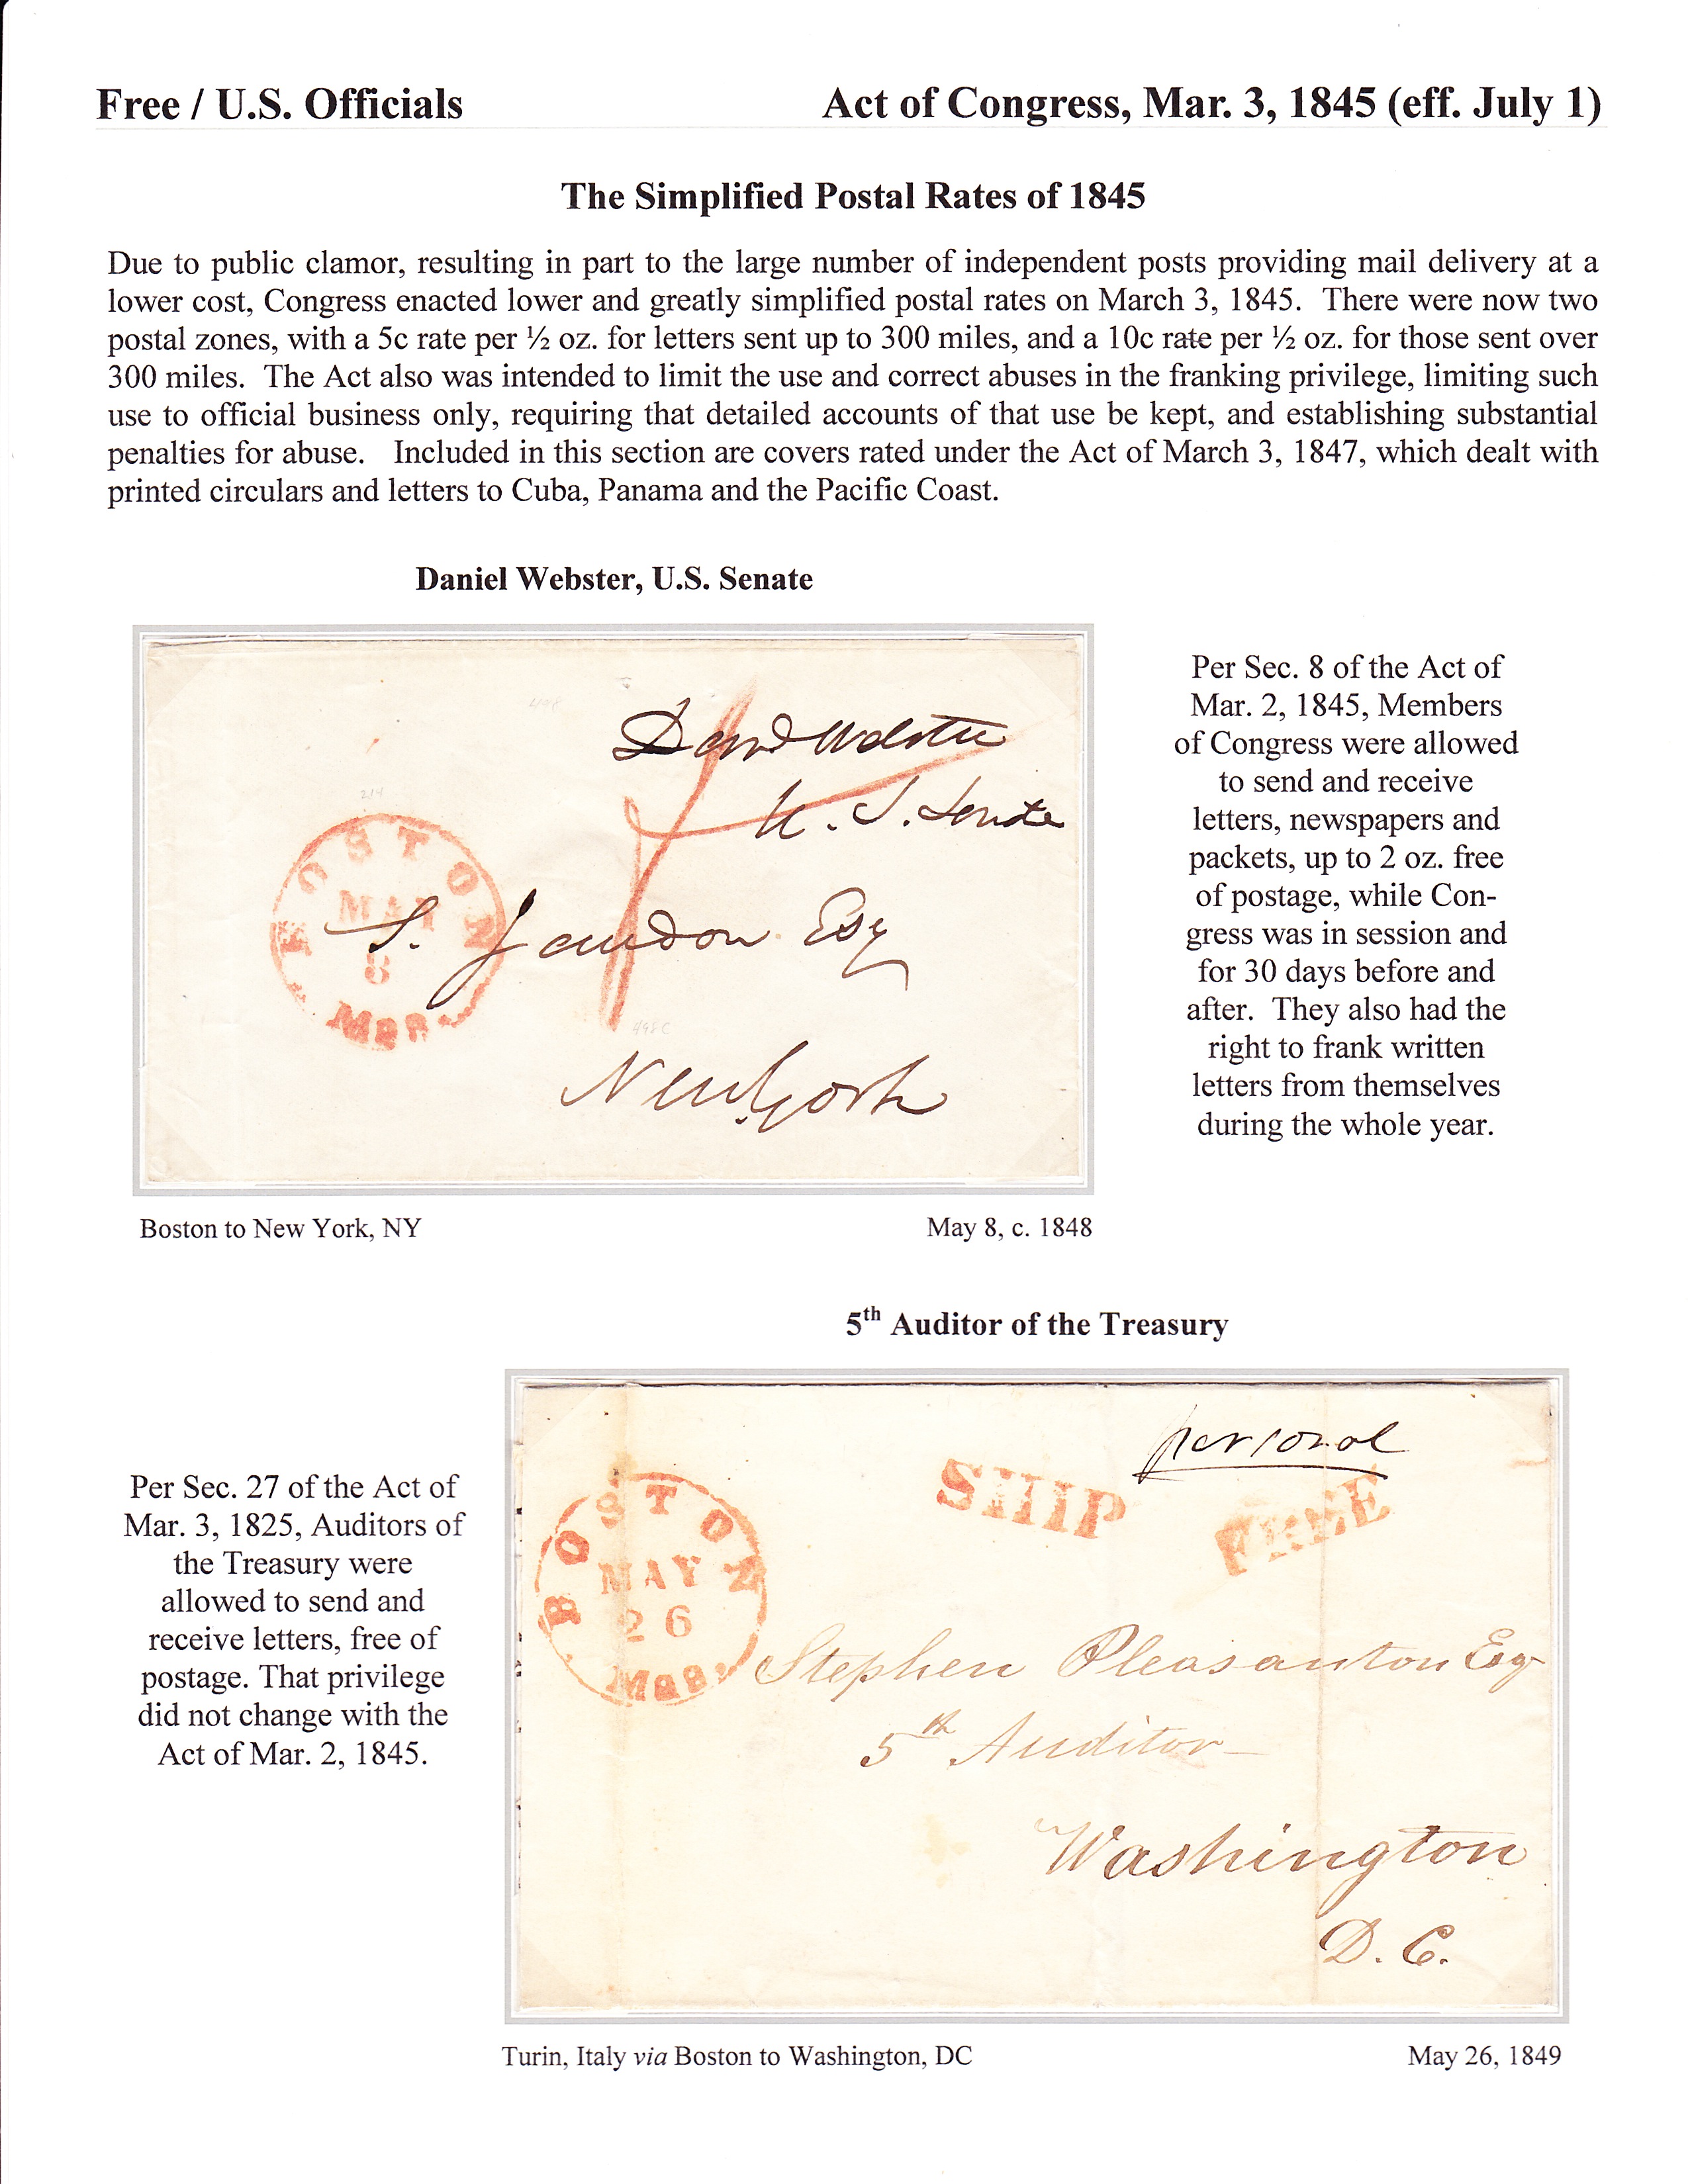 Free / U.S. Officials
Act of Congress, Mar. 3, 1845 (eff. July 1)
The Simplified Postal Rates of 1845
Due to public clamor, resulting in part to the large number of independent posts providing mail delivery at a
lower cost, Congress enacted lower and greatly simplified postal rates on March 3, 1845. There were now two
postal zones, with a 5c rate per ½ oz. for letters sent up to 300 miles, and a 10c rate per ½ oz. for those sent over
300 miles. The Act also was intended to limit the use and correct abuses in the franking privilege, limiting such
use to official business only, requiring that detailed accounts of that use be kept, and establishing substantial
penalties for abuse. Included in this section are covers rated under the Act of March 3, 1847, which dealt with
printed circulars and letters to Cuba, Panama and the Pacific Coast.
Daniel Webster, U.S. Senate
Danl Webster
U. S. Senate
BOSTON
MAY
8
Mas.
S. Jaudon Esq
New York
Per Sec. 8 of the Act of
Mar. 2, 1845, Members
of Congress were allowed
to send and receive
letters, newspapers and
packets, up to 2 oz. free
of postage, while Con-
gress was in session and
for 30 days before and
after. They also had the
right to frank written
letters from themselves
during the whole year.
Boston to New York, NY
May 8, c. 1848
5th Auditor of the Treasury
Per Sec. 27 of the Act of
Mar. 3, 1825, Auditors of
the Treasury were
allowed to send and
receive letters, free of
postage. That privilege
did not change with the
Act of Mar. 2, 1845.
personal
SHIP
FREE
BOSTON
MAY
26
Mas.
Stephen Pleasanton Esq
5th Auditor
Washington
D. C.
Turin, Italy via Boston to Washington, DC
May 26, 1849